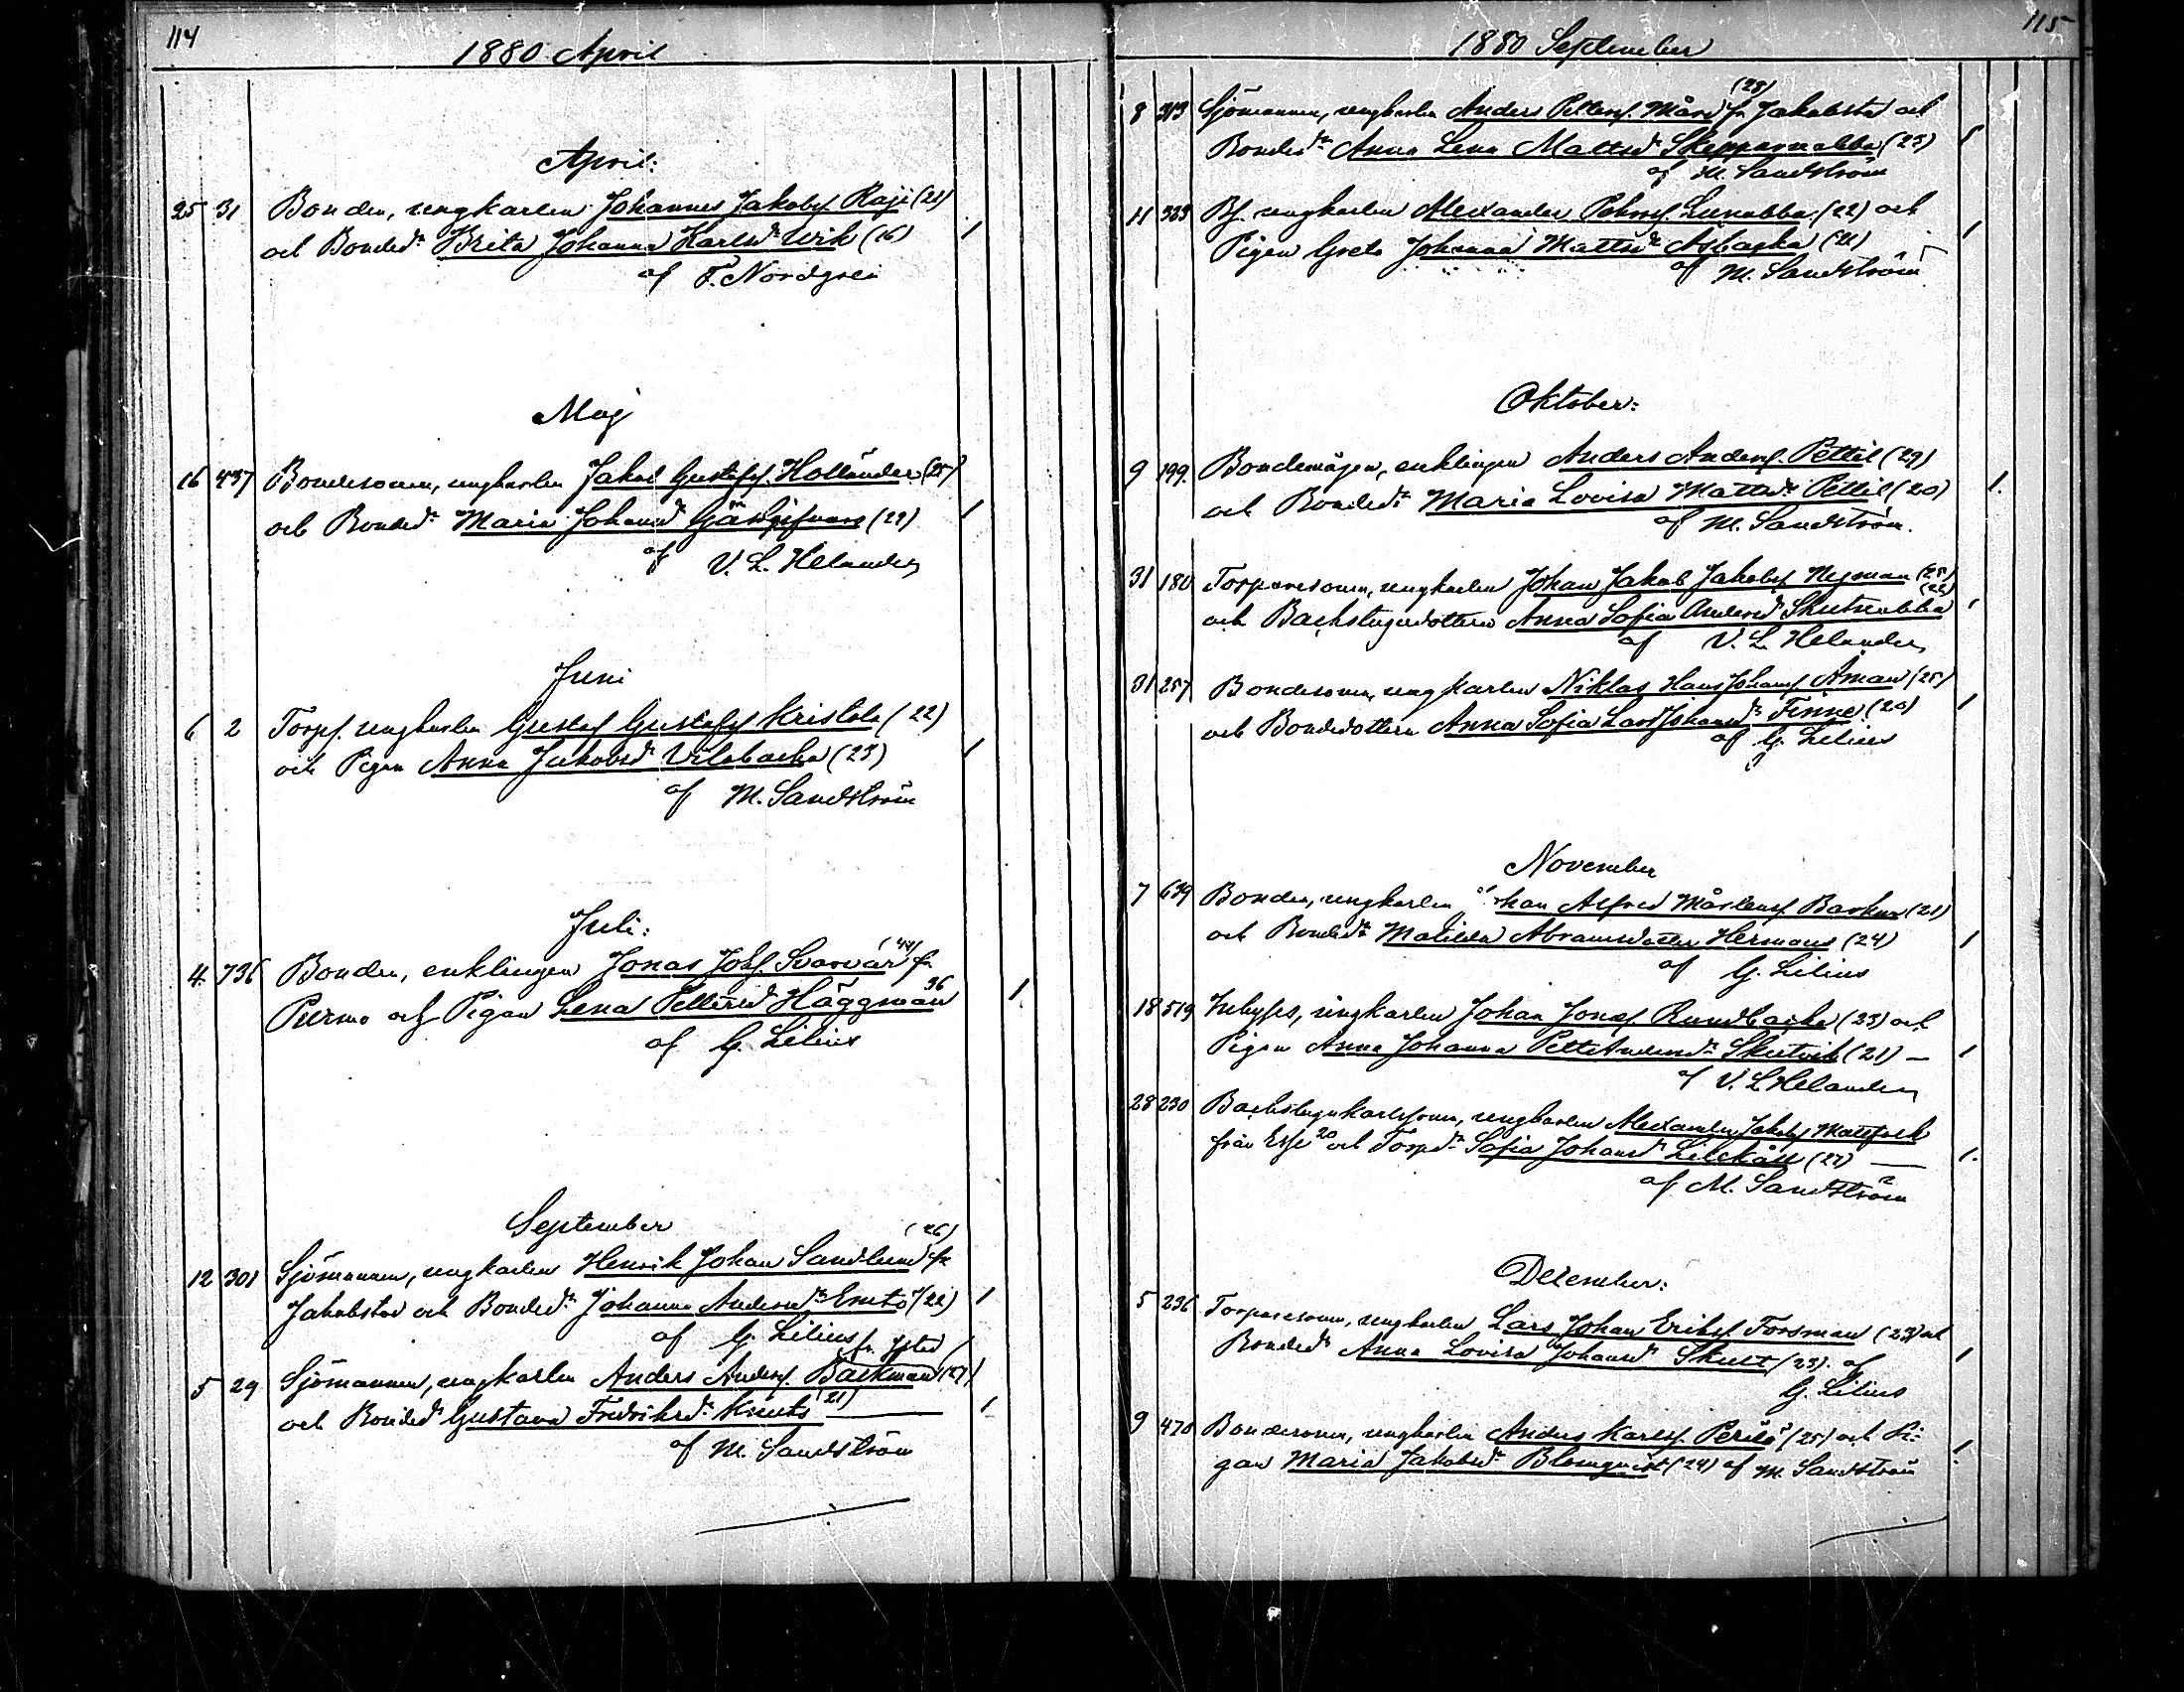 114
1880 April
April:
25 31 Bonden, ungkarlen Johannes Jakobsf. Raji (21)
och Bonded:r Brita Johanna Karlsd:r Wik (16) 1
af F. Nordgren
Maj
16 437 Bondesonen, ungkarlen Jakob Gustafsf. Holländer (25)
och Bonded:r Maria Johansd:r Gästgifvars (22) 1
af V. L. Helander
Juni
6 2 Torpf. ungkarlen Gustaf Gustafsf. Kristola (22)
och Pigan Anna Jakobsd:r Vilobacka (23) 1
af M. Sandström
Juli:
4. 736 Bonden, enklingen Jonas Johsf. Svarvar (44) fr.
Purmo och Pigan Lena Pettersd:r Häggman 36 1.
af G. Lilius
September
12 301 Sjömannen, ungkarlen Henrik Johan Sandlund (26) fr.
Jakobstad och Bonded:r Johanna Andersd:r Emto (22) 1
af G. Lilius
5 29 Sjömannen, ungkarlen Anders Andersf. Backman (27)
och Bonded:r Gustava Fredriksd:r Knuts (21) 1
af M. Sandström
115
1880 September
8 313 Sjömannen, ungkarlen Anders Pettersf. Mård (23) fr. Jakobstad och
Bonded:r Anna Lena Mattsd:r Skepparnabba (23) 1
af M. Sandström
11 323 Bf. ungkarlen Alexander Lunabba (22) och
Pigan Greta Johanna Mattsd:r 1
af M. Sandström
Oktober:
9 199. Bondemågen, enklingen Anders Andersf. Pettil (29)
och Bonded:r Maria Lovisa Mattsd:r Pettil (20) 1.
af M. Sandström.
31 180 Torparesonen, ungkarlen Johan Jakob Jakobsf. Nyman (25)
och Backstugudottern Anna Sofia Andersd:r Skutnabba (22) 1
af V. L. Helander
31 257 Bondesonen, ungkarlen Niklas Hans Johansf. Åman (25)
och Bondedottern Anna Sofia Lars Johansd:r Finne (20) 1
af G. Lilius
November
7 639 Bonden, ungkarlen Johan Alfred Mårtensf. Backus (21)
och Bonded:r Matilda Abramsdotter Hermans (24) 1
af G. Lilius
18 519 Inhyses, ungkarlen Johan Jonasf. Rundbacka (23) och
Pigan Anna Johanna Pett Andersd:r Skutvik (21) – 1
af V. L. Helander
28 230 Backstugukarlssonen, ungkarlen Alexander Jakobsf. Mattfolk
från Esse 20 och Torpd:r Sofia Johansd:r Lillkåll (27) — 1.
af M. Sandström
December:
5 236 Torparesonen, ungkarlen Lars Johan Eriksf. Forsman (23) och
Bonded:r Anna Lovisa Johansd:r Skult (23). af 1
G. Lilius
9 470 Bondesonen, ungkarlen Anders Karlsf. Perilö (25) och Pi-
gan Maria Jakobsd:r Blomqvist (24) af M. Sandström 1.